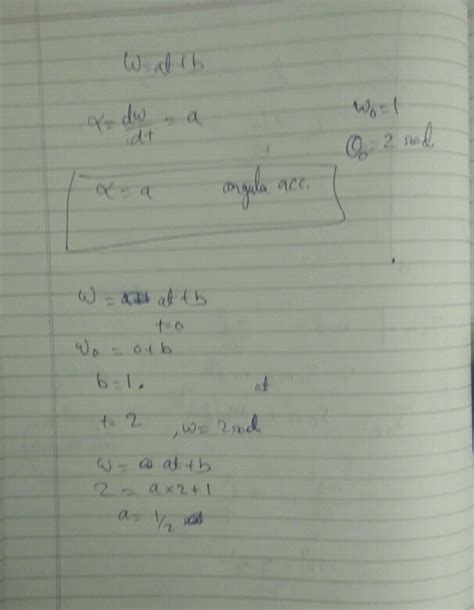 ω = at + b
α = dω/dt = a
ω₀ = 1
θ₀ = 2 rad.
α = a angula acc.
ω = at + b
t = 0
ω₀ = 0 + b
b = 1.
at
t = 2 , ω = 2 rad
ω = at + b
2 = a × 2 + 1
a = 1/2